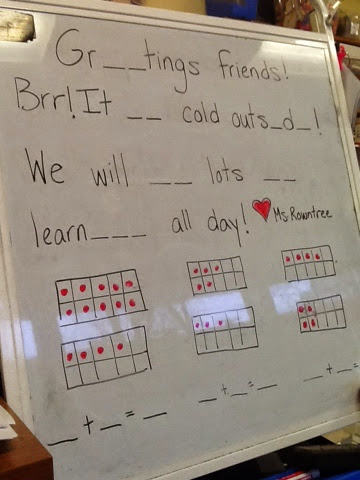 Gr__tings friends!
Brr! It __ cold outs_d_!
We will __ lots __
learn___ all day! ♥ Ms. Rowntree
_ + _ = _ _ + _ = _ _ + _ =